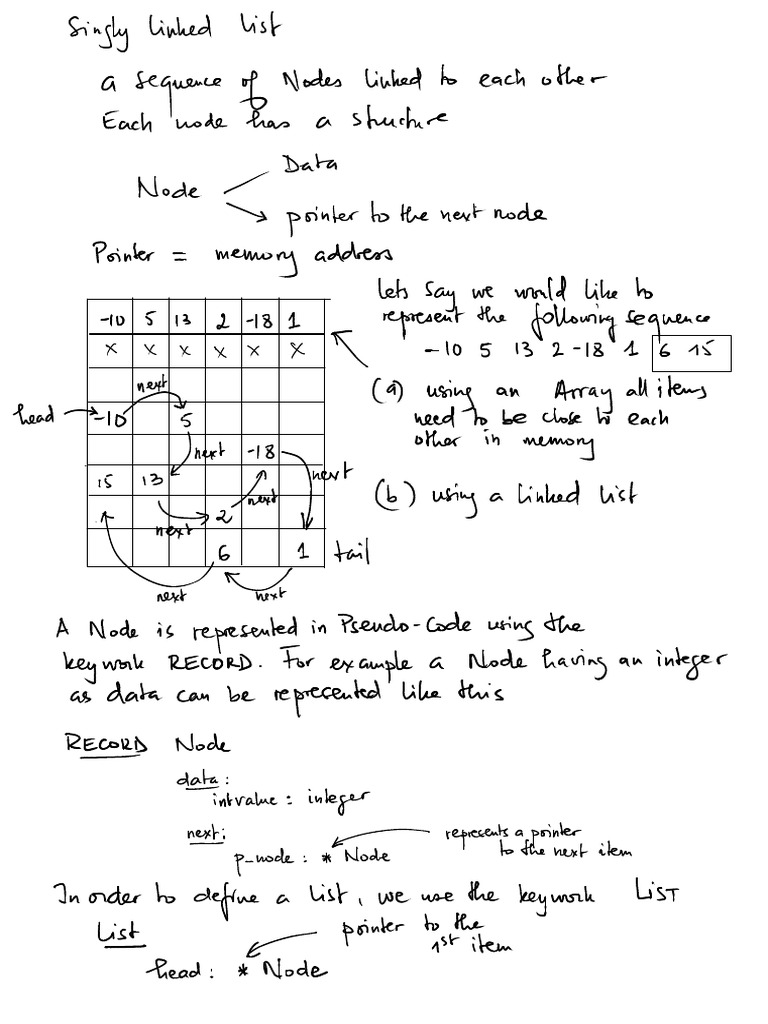 Singly linked list
a sequence of Nodes linked to each other
Each node has a structure
Node
Data
pointer to the next node
Pointer = memory address
lets say we would like to
represent the following sequence
-10 5 13 2 -18 1 6 15
-10 5 13 2 -18 1
x x x x x x
next
head -10 5
next -18
15 13 next
next 2 next
6 1 tail
next next
(a) using an Array all items
need to be close to each
other in memory
(b) using a linked list
A Node is represented in Pseudo-Code using the
keywork RECORD. For example a Node having an integer
as data can be represented like this
RECORD Node
data:
intvalue: integer
next:
p-node: * Node
represents a pointer
to the next item
In order to define a list, we use the keywork LIST
List
pointer to the
1st item
head: * Node